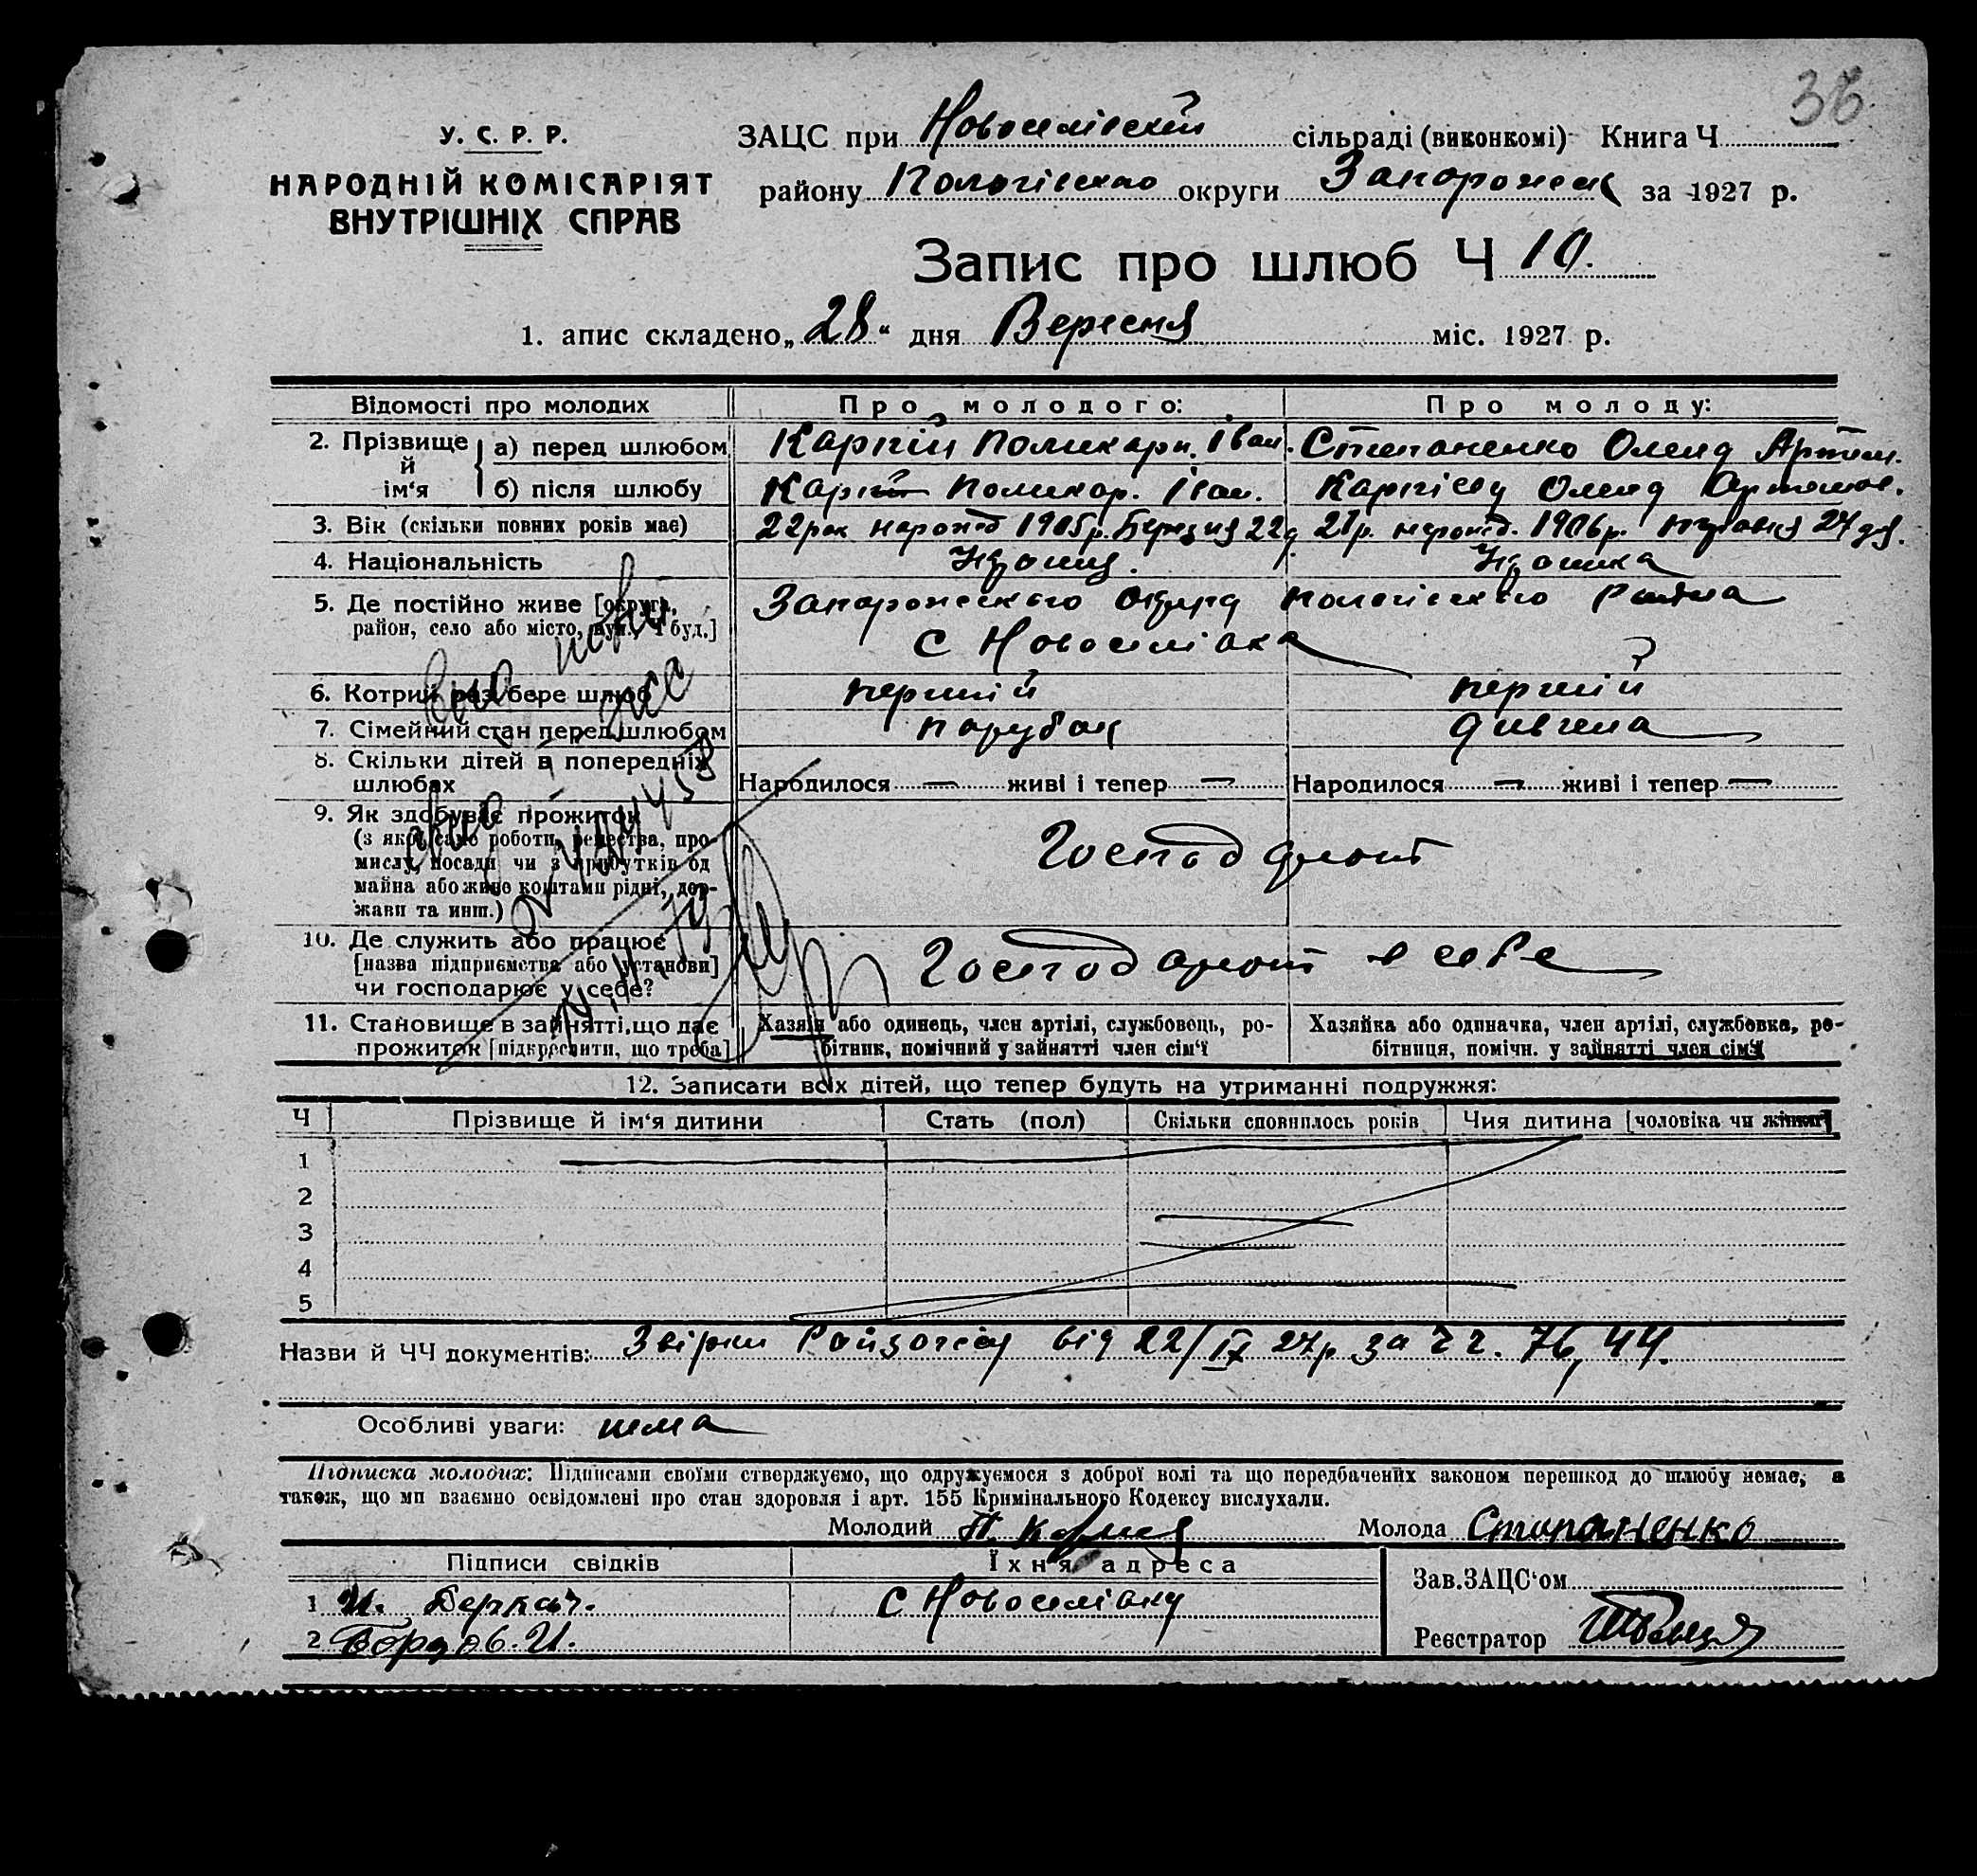 38
У. С. Р. Р.
НАРОДНІЙ КОМІСАРІЯТ
ВНУТРІШНІХ СПРАВ
ЗАЦС при Новоселівській сільраді (виконкомі) Книга Ч
району Пологівсько округи Запорожск за 1927 р.
Запис про шлюб Ч 10.
1. апис складено „28“ дня Вересня міс. 1927 р.
Відомості про молодих Про молодого: Про молоду:
2. Прізвище й ім‘я а) перед шлюбом Карпій Поликарп. Іван. Степаненко Олена Артем.
б) після шлюбу Карпій Поликар. Іван. Карпієву Олена Артемов.
3. Вік (скільки повних років має) 22 рок народ 1905 р. Березня 22 д 21 р. народ. 1906 р. травня 24 дня.
4. Національність Українц. Українка
5. Де постійно живе [округа, район, село або місто, вул., Ч буд.] Запорожського округу Пологівського району
с Новоселівка
6. Котрий раз бере шлюб перший перший
7. Сімейний стан перед шлюбом парубок дивчина
8. Скільки дітей в попередніх шлюбах Народилося — живі і тепер — Народилося — живі і тепер —
9. Як здобуває прожиток
(з якої саме роботи, ремества, про-
мислу, посади чи з прибутків од
майна або живе коштами рідні, дер-
жави та инш.)
10. Де служить або працює
[назва підприємства або установи]
чи господарює у себе?
11. Становище в зайнятті, що дає Хазяїн або одинець, член артілі, службовець, ро- Хазяйка або одиначка, член артілі, службовка, ро-
прожиток [підкреслити, що треба] бітник, помічний у зайнятті член сім‘ї бітниця, помічн. у зайнятті член сім‘ї
12. Записати всіх дітей, що тепер будуть на утриманні подружжя:
Ч Прізвище й ім‘я дитини Стать (пол) Скільки сповнилось років Чия дитина [чоловіка чи жінки]
1
2
3
4
5
Назви й ЧЧ документів: від 22/IX 27 р за чч. 76, 44.
Особливі уваги: нема
Підписка молодих: Підписами своїми стверджуємо, що одружуємося з доброї волі та що передбачених законом перешкод до шлюбу немає, а
також, що ми взаємно освідомлені про стан здоровля і арт. 155 Кримінального Кодексу вислухали.
Молодий П. Карпей Молода Стипаненко
Підписи свідків Їхня адреса Зав.ЗАЦС‘ом
1 И. Деркач. с Новоселівку
2 И. Реєстратор